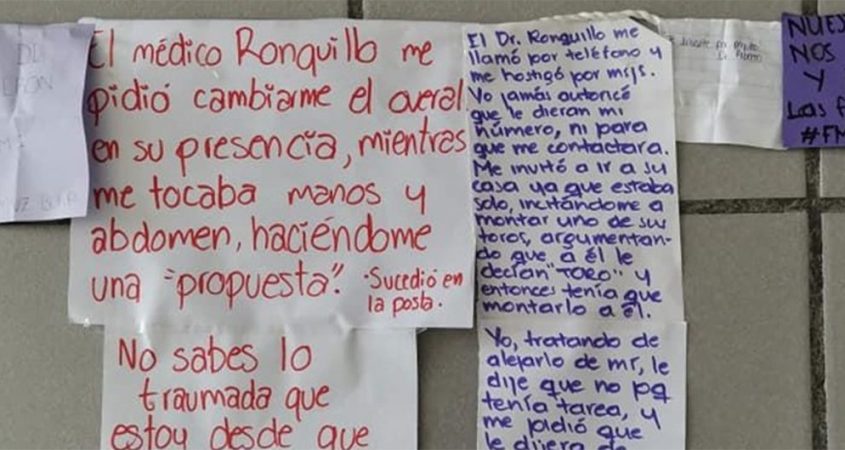 El médico Ronquillo me
pidió cambiarme el overal
en su presencia, mientras
me tocaba manos y
abdomen, haciéndome
una "propuesta".
·Sucedió en
la posta.
No sabes lo
traumada que
estoy desde que
El Dr. Ronquillo me
llamó por teléfono y
me hostigó por msjs.
Yo jamás autoricé
que le dieran mi
número, ni para
que me contactara.
Me invitó a ir a su
casa ya que estaba
solo, incitándome a
montar uno de sus
toros, argumentan-
do que a él le
decían "TORO" y
entonces tenía que
montarlo a él.
Yo, tratando de
alejarlo de mí, le
dije que no pq
tenía tarea, y
me pidió que
le dijera de
NUES
NOS
Y
Las f
#FM